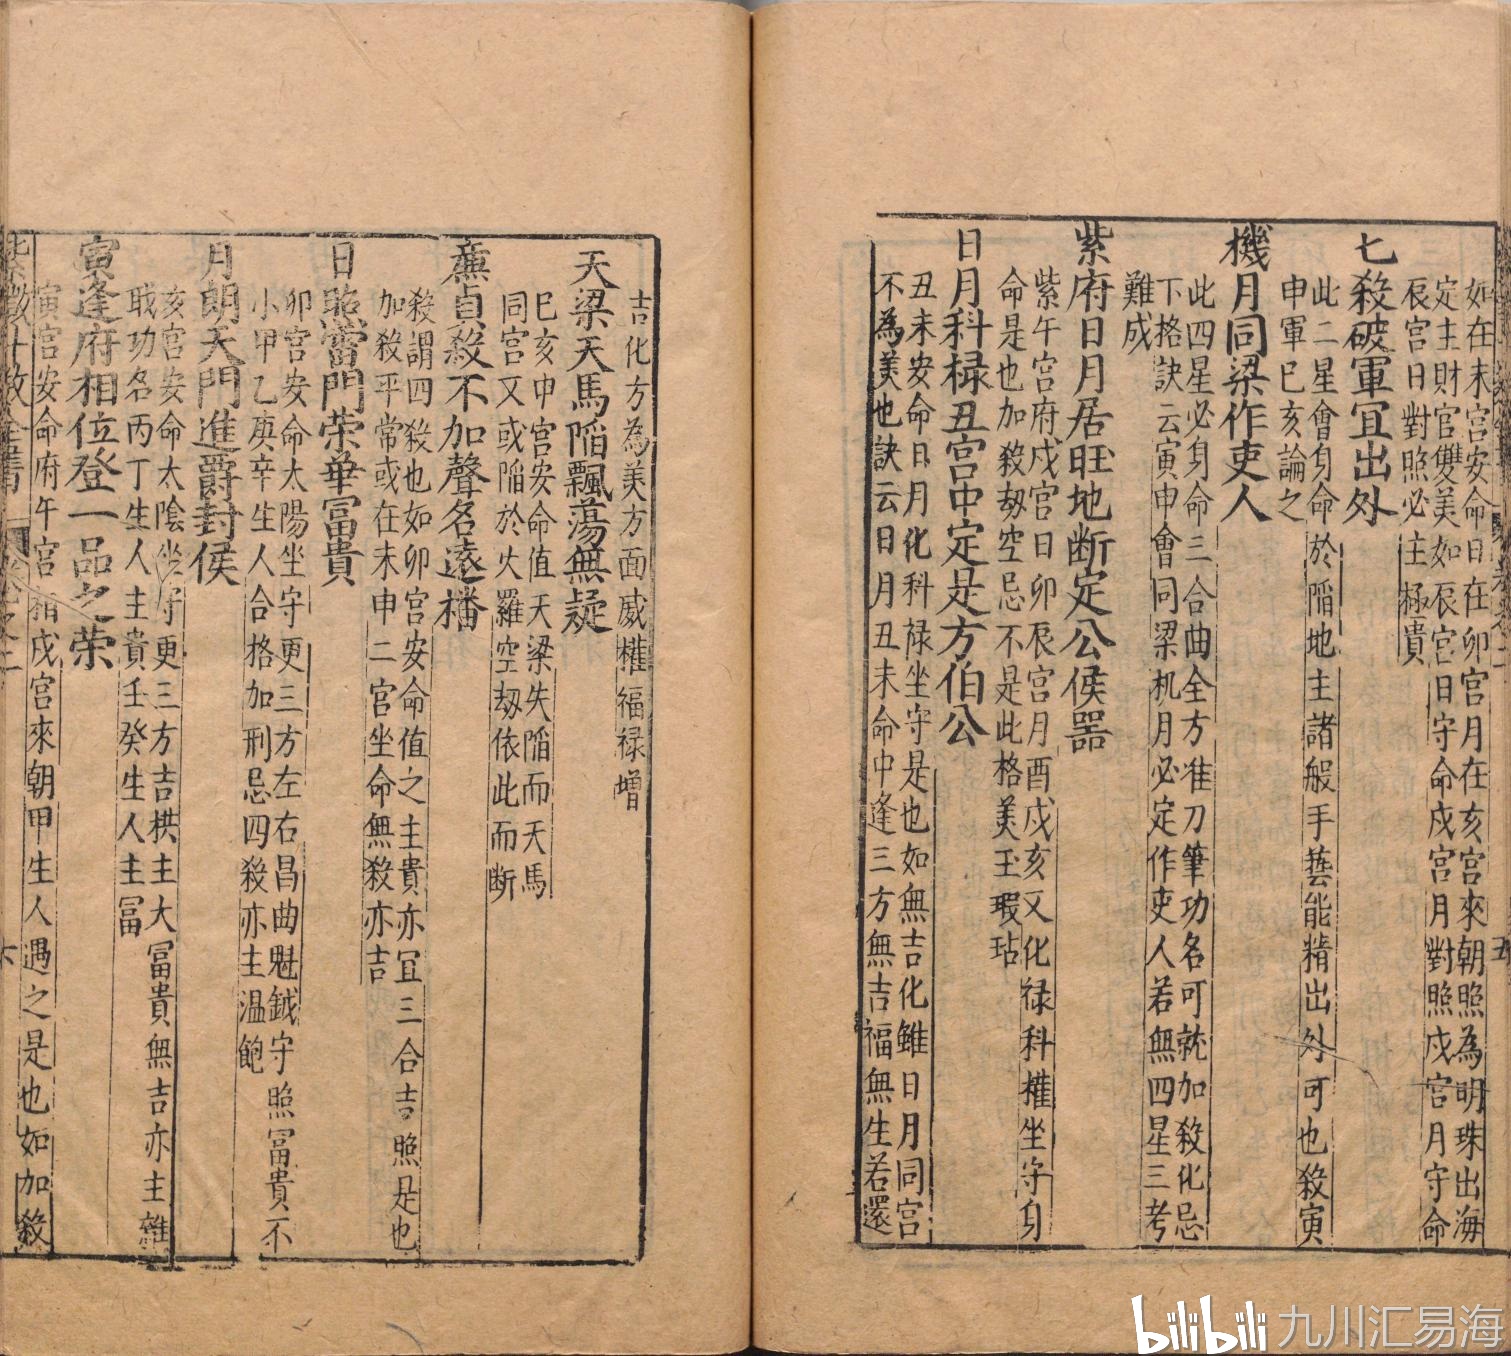 如在未宮安命日在卯宮月在亥宮來朝照為明珠出海
定主財官雙美如辰宮日守命戌宮月對照戌宮月守命
辰宮日對照必主極貴
七殺破軍宜出外
此二星會身命於陷地主諸般手藝能精出外可也殺寅
申軍巳亥論之
機月同梁作吏人
此四星必身命三合曲全方准刀筆功名可就加殺化忌
下格訣云寅申會同梁机月必定作吏人若無四星三考
難成
紫府日月居旺地断定公侯噐
紫午宮府戌宮日卯辰宮月酉戌亥又化禄科權坐守身
命是也加殺刼空忌不是此格美玉瑕玷
日月科祿丑宮中定是方伯公
丑未安命日月化科禄坐守是也如無吉化雖日月同宮
不為美也訣云日月丑未命中逢三方無吉福無生若還
五
吉化方為美方面威權福禄增
天梁天馬陷飄蕩無疑
巳亥申宮安命值天梁失陷而天馬
同宮又或陷於火羅空刼依此而断
亷貞殺不加聲名遠播
殺謂四殺也如卯宮安命值之主貴亦冝三合吉照是也
加殺平常或在未申二宮坐命無殺亦吉
日照當門荣華冨貴
卯宮安命太陽坐守更三方左右昌曲魁鉞守照冨貴不
小甲乙庚辛生人合格加刑忌四殺亦主温飽
月朗天門進爵封侯
亥宮安命太陰坐守更三方吉拱主大冨貴無吉亦主雜
職功名丙丁生人主貴壬癸生人主冨
寅逢府相位登一品之荣
寅宮安命府午宮相戌宮來朝甲生人遇之是也如加殺
六
bilibili 九川汇易海